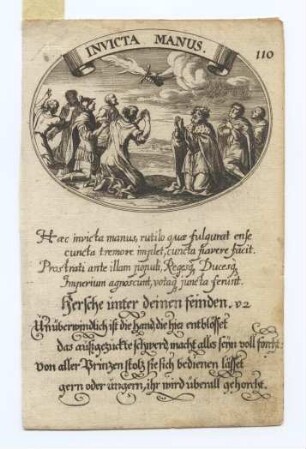 INVICTA MANUS.
110
Hæc invicta manus, rutilo quæ fulgurat ense
cuncta tremore implet, cuncta pavere facit.
Prostrati ante illam populi, Regesq, Ducesq,
Imperium agnoscunt, votaq juncta ferunt.
Hersche unter deinen feinden. v2
Unüberwindlich ist die hand die hier entblösset
das außgezuckte schwerd, macht alles seyn voll forcht:
von aller Prinzen stolz sie sich bedienen lässet
gern oder ungern, ihr wird überall gehorcht.